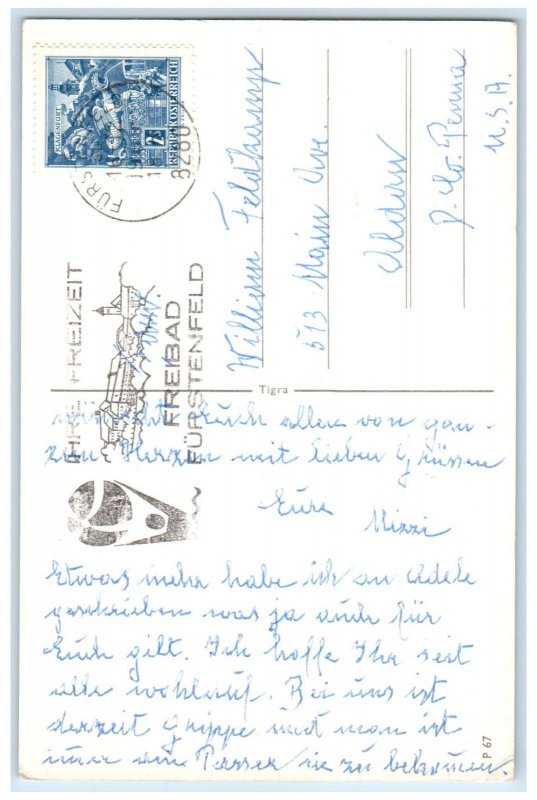 KLAGENFURT
2S
REPUBLIK ÖSTERREICH
8280
IHRE FREIZEIT
FREIBAD
FÜRSTENFELD
William Feldkamp
513 Main Ave.
Aldan
P. Co. Penna
U.S.A.
Tigra
wünscht Euch allen von gan-
zen Herzen mit lieben Grüssen
Eure
Mizzi
Etwas mehr habe ich an Adele
geschrieben was ja auch für
Euch gilt. Ich hoffe Ihr seit
alle wohlauf. Bei uns ist
derzeit Grippe und man ist
imer am Passer sie zu bekommen.
P 67